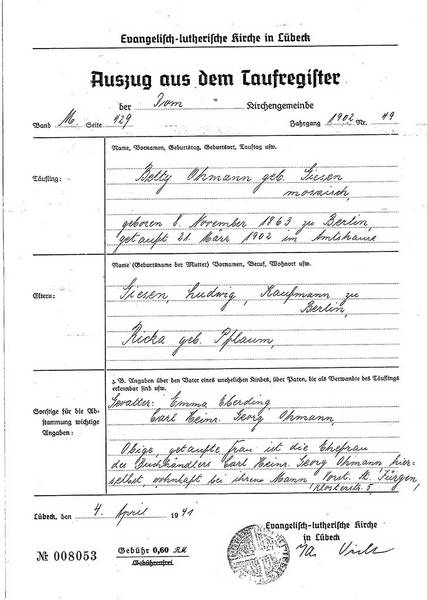 Evangelisch-lutherische Kirche in Lübeck
Auszug aus dem Taufregister
der Dom Kirchengemeinde
Band M Seite 429 Jahrgang 1902 Nr. 49
Name, Vornamen, Geburtstag, Geburtsort, Tauftag usw.
Täufling:
Betty Ohmann geb. Siesen
mosaisch,
geboren 8. November 1863 zu Berlin,
getauft 21. März 1902 im Amtshause
Name (Geburtsname der Mutter) Vornamen, Beruf, Wohnort usw.
Eltern:
Siesen, Ludwig, Kaufmann zu
Berlin,
Ricka geb. Pflaum,
z. B. Angaben über den Vater eines unehelichen Kindes, über Paten, die als Verwandte des Täuflings
erkennbar sind usw.
Sonstige für die Ab-
stammung wichtige
Angaben:
Gevatter: Emma Eberding,
Carl Heinr. Georg Ohmann,
Obige, getaufte Frau ist die Ehefrau
des Carl Heinr. Georg Ohmann, hier-
selbst, wohnhaft bei ihrem Mann, Vorst. St. Jürgen,
Klosterstr. 5
Lübeck, den 4. April 1941
Evangelisch-lutherische Kirche
in Lübeck
№ 008053
Gebühr 0,60 RM
Gebührenfrei